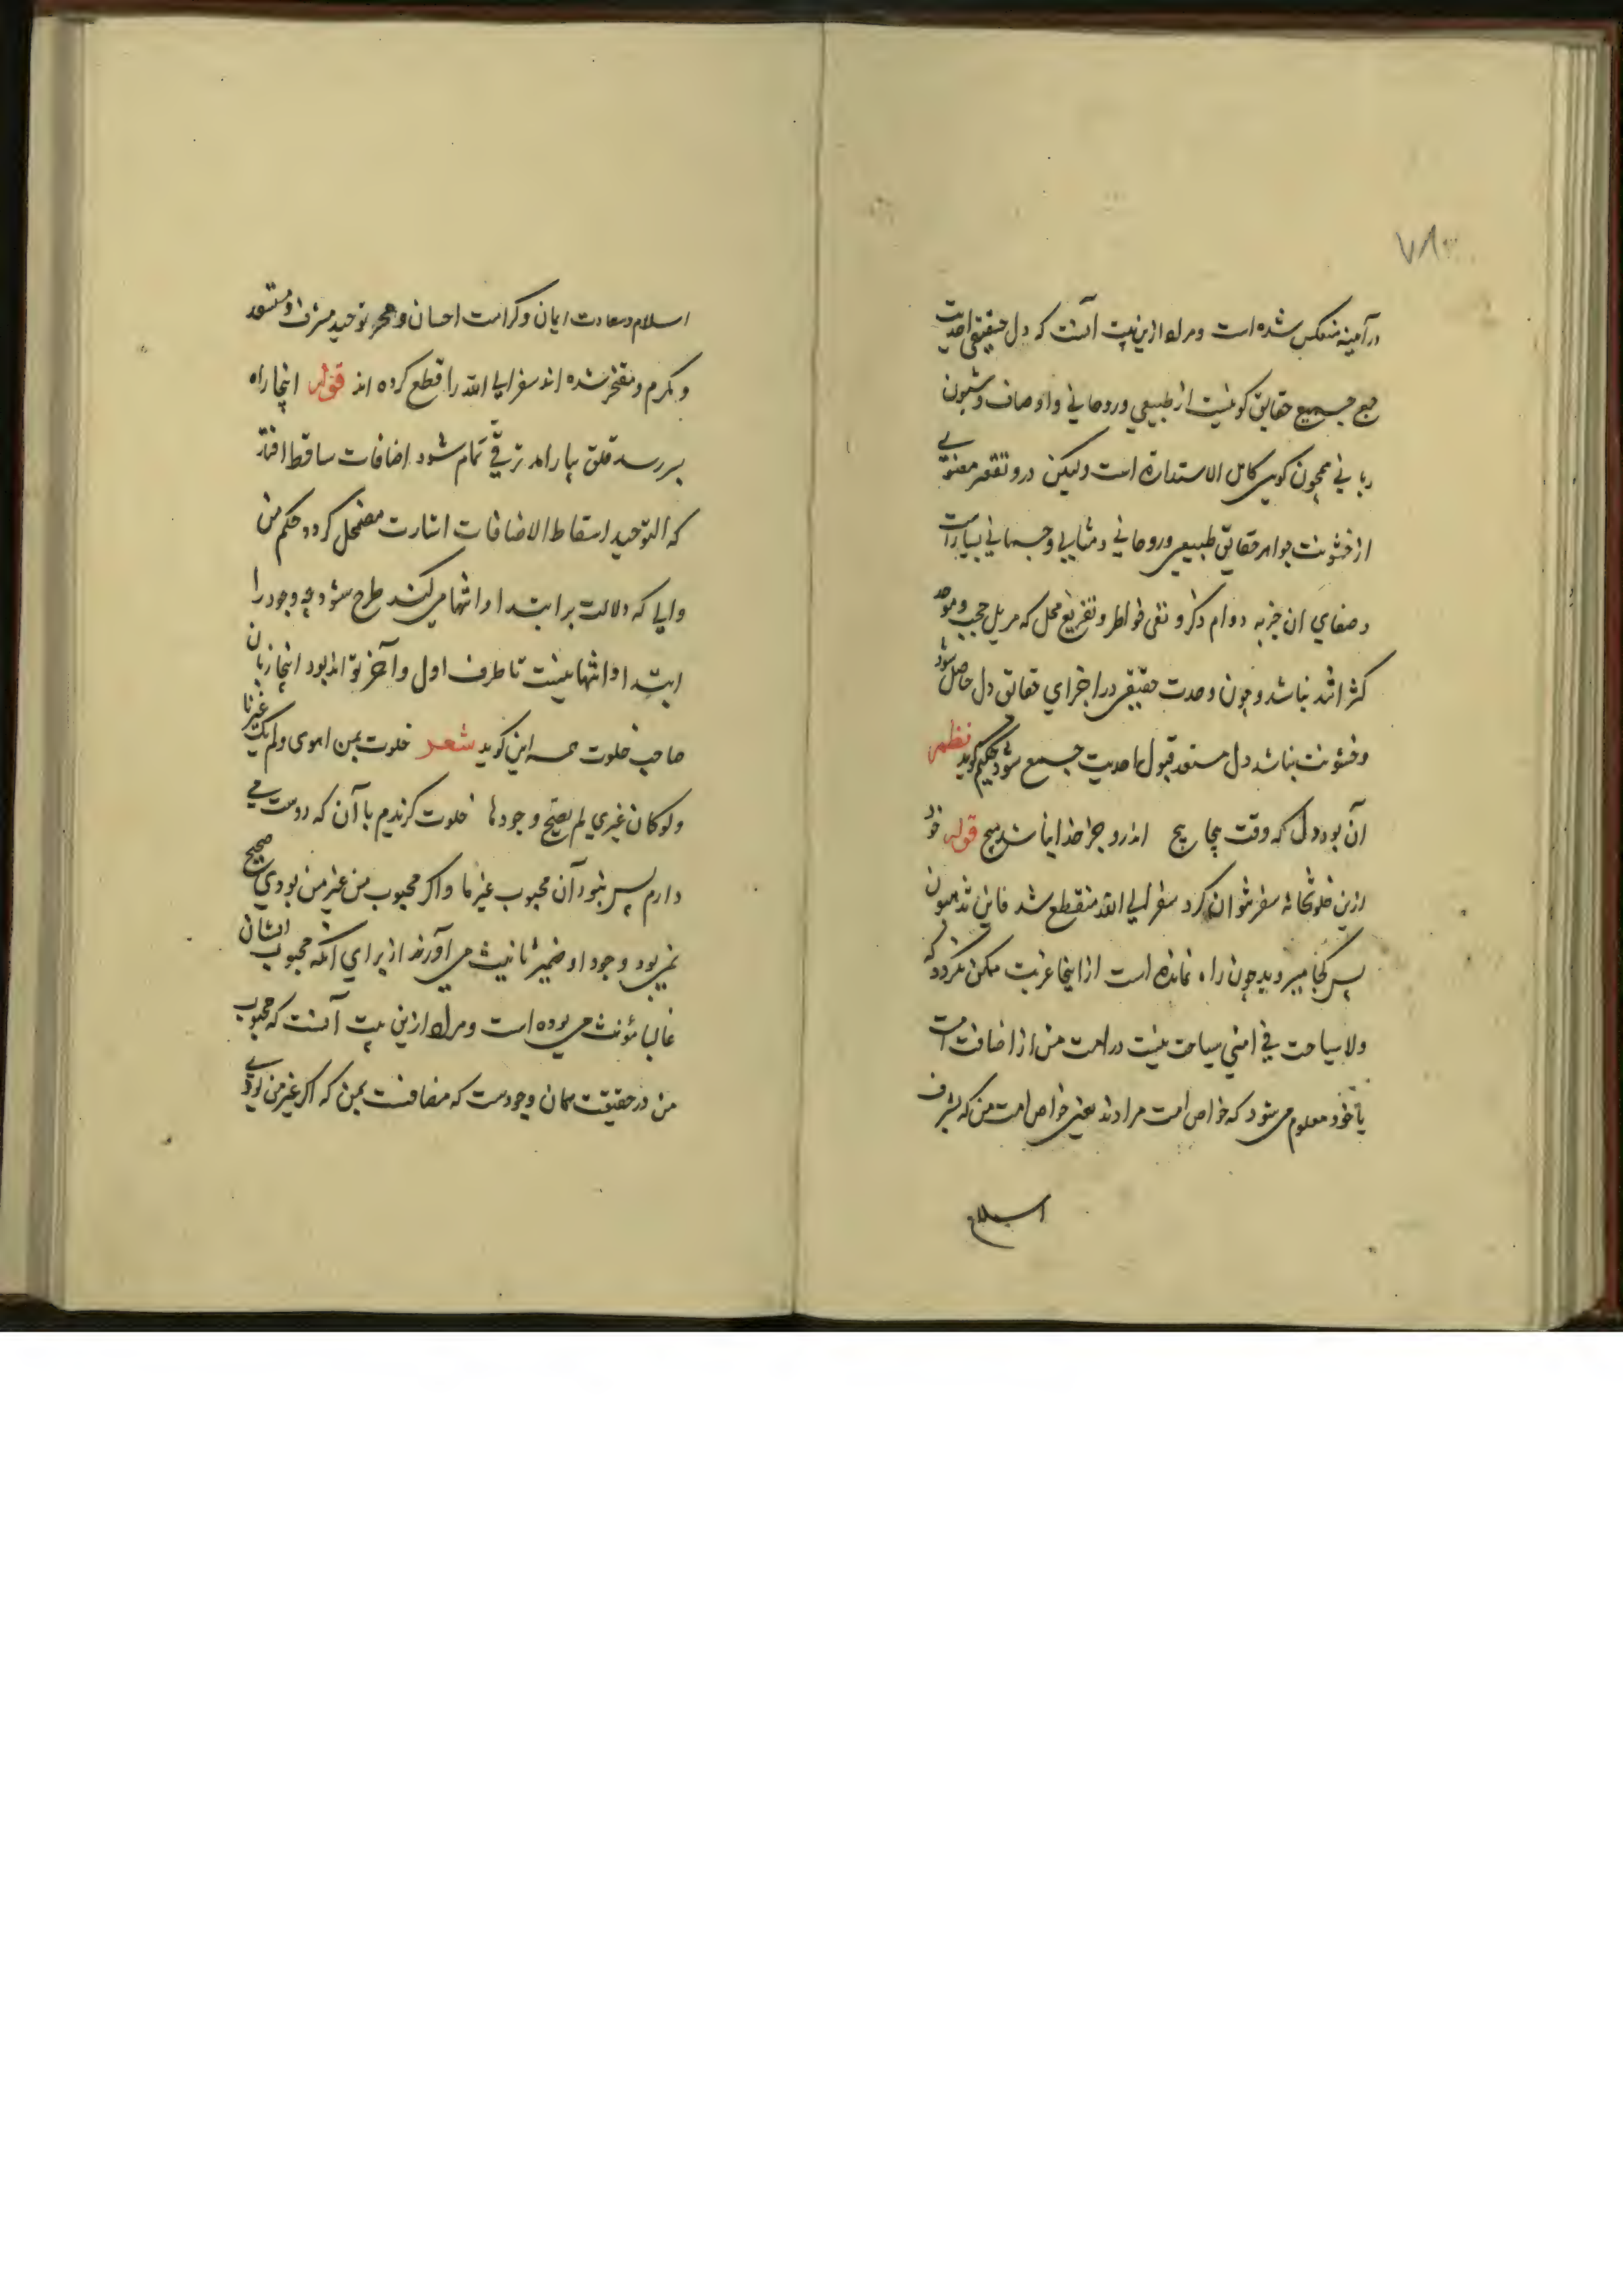 ۷۸
در آمینه منعکس شده است و مراد ازین بیت آنست که دل حقیقی احدیت
جمع جمیع حقایق کونیست از طبیعی و روحانی و اوصاف و شیون
ربانی همچون کویی کامل الاستداره است ولیکن درو تقعر معنوی
از خشونت جواهر حقایق طبیعی و روحانی و مثالی و جسمانی بسیارست
و صفای ان جزبه دوام ذکر و نفی خواطر و تفریغ محل که مزیل حجب و موحد
کثر اند نباشد و چون وحدت حقیقی در اجزای حقائق دل حاصل شود
و خشونت نباشد دل مستعد قبول احدیت جمع شود حکیم گوید نظم
آن بود دل که وقت پیچاپیچ اندرو جز خدا نباشد هیچ قوله خود
ازین خلوتخانه سفر نتوان کرد سفر الی الله منقطع شد فاین تذهبون
پس کجا میروید چون راه نمانده است از اینجا غربت ممکن نکردد که
ولا سیاحت فی امتی سیاحت نیست در امت من از اضافت امت
با خود معلوم می شود که خواص امت مرادند یعنی خواص امت من که بشرف
اسلام
اسلام و سعادت ایمان و کرامت احسان و توحید مشرف و مستعد
و مکرم و مفتخر شده اند سفر الی الله را قطع کرده اند قوله اینجا راه
بسر رسد قلق بیارامد ترقی تمام شود اضافات ساقط افتد
که التوحید اسقاط الاضافات اشارت مضمحل کردد حکم من
والی که دلالت بر ابتدا و انتها می کند طرح شود چه وجود را
ابتدا و انتها نیست تا طرف اول و آخر تواند بود اینجا زبان
صاحب خلوت همه این کوید شعر خلوت بمن اهوی و لم یک غیرنا
ولو کان غیری لم یصح وجودها خلوت کزیدم با آن که دوست می
دارم پس نبود آن محبوب غیر ما و اکر محبوب من غیر من بودی صحیح
نمی بود وجود او ضمیر تانیث می آورند از برای آنکه محبوب ایشان
غالبا مؤنث می بوده است و مراد ازین بیت آنست که محبوب
من در حقیقت همان وجودست که مضافست بمن که اکر غیر من بودی